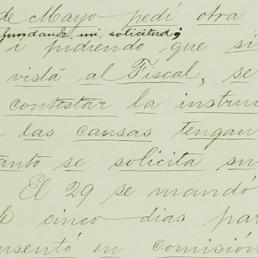 de Mayo pedí otra
fundando mi solicitud;
i pidiendo que si
vista al Fiscal, se
contestar la instruc
las causas tengan
anto se solicita su
El 29 se mandó
cinco dias par
en comisión